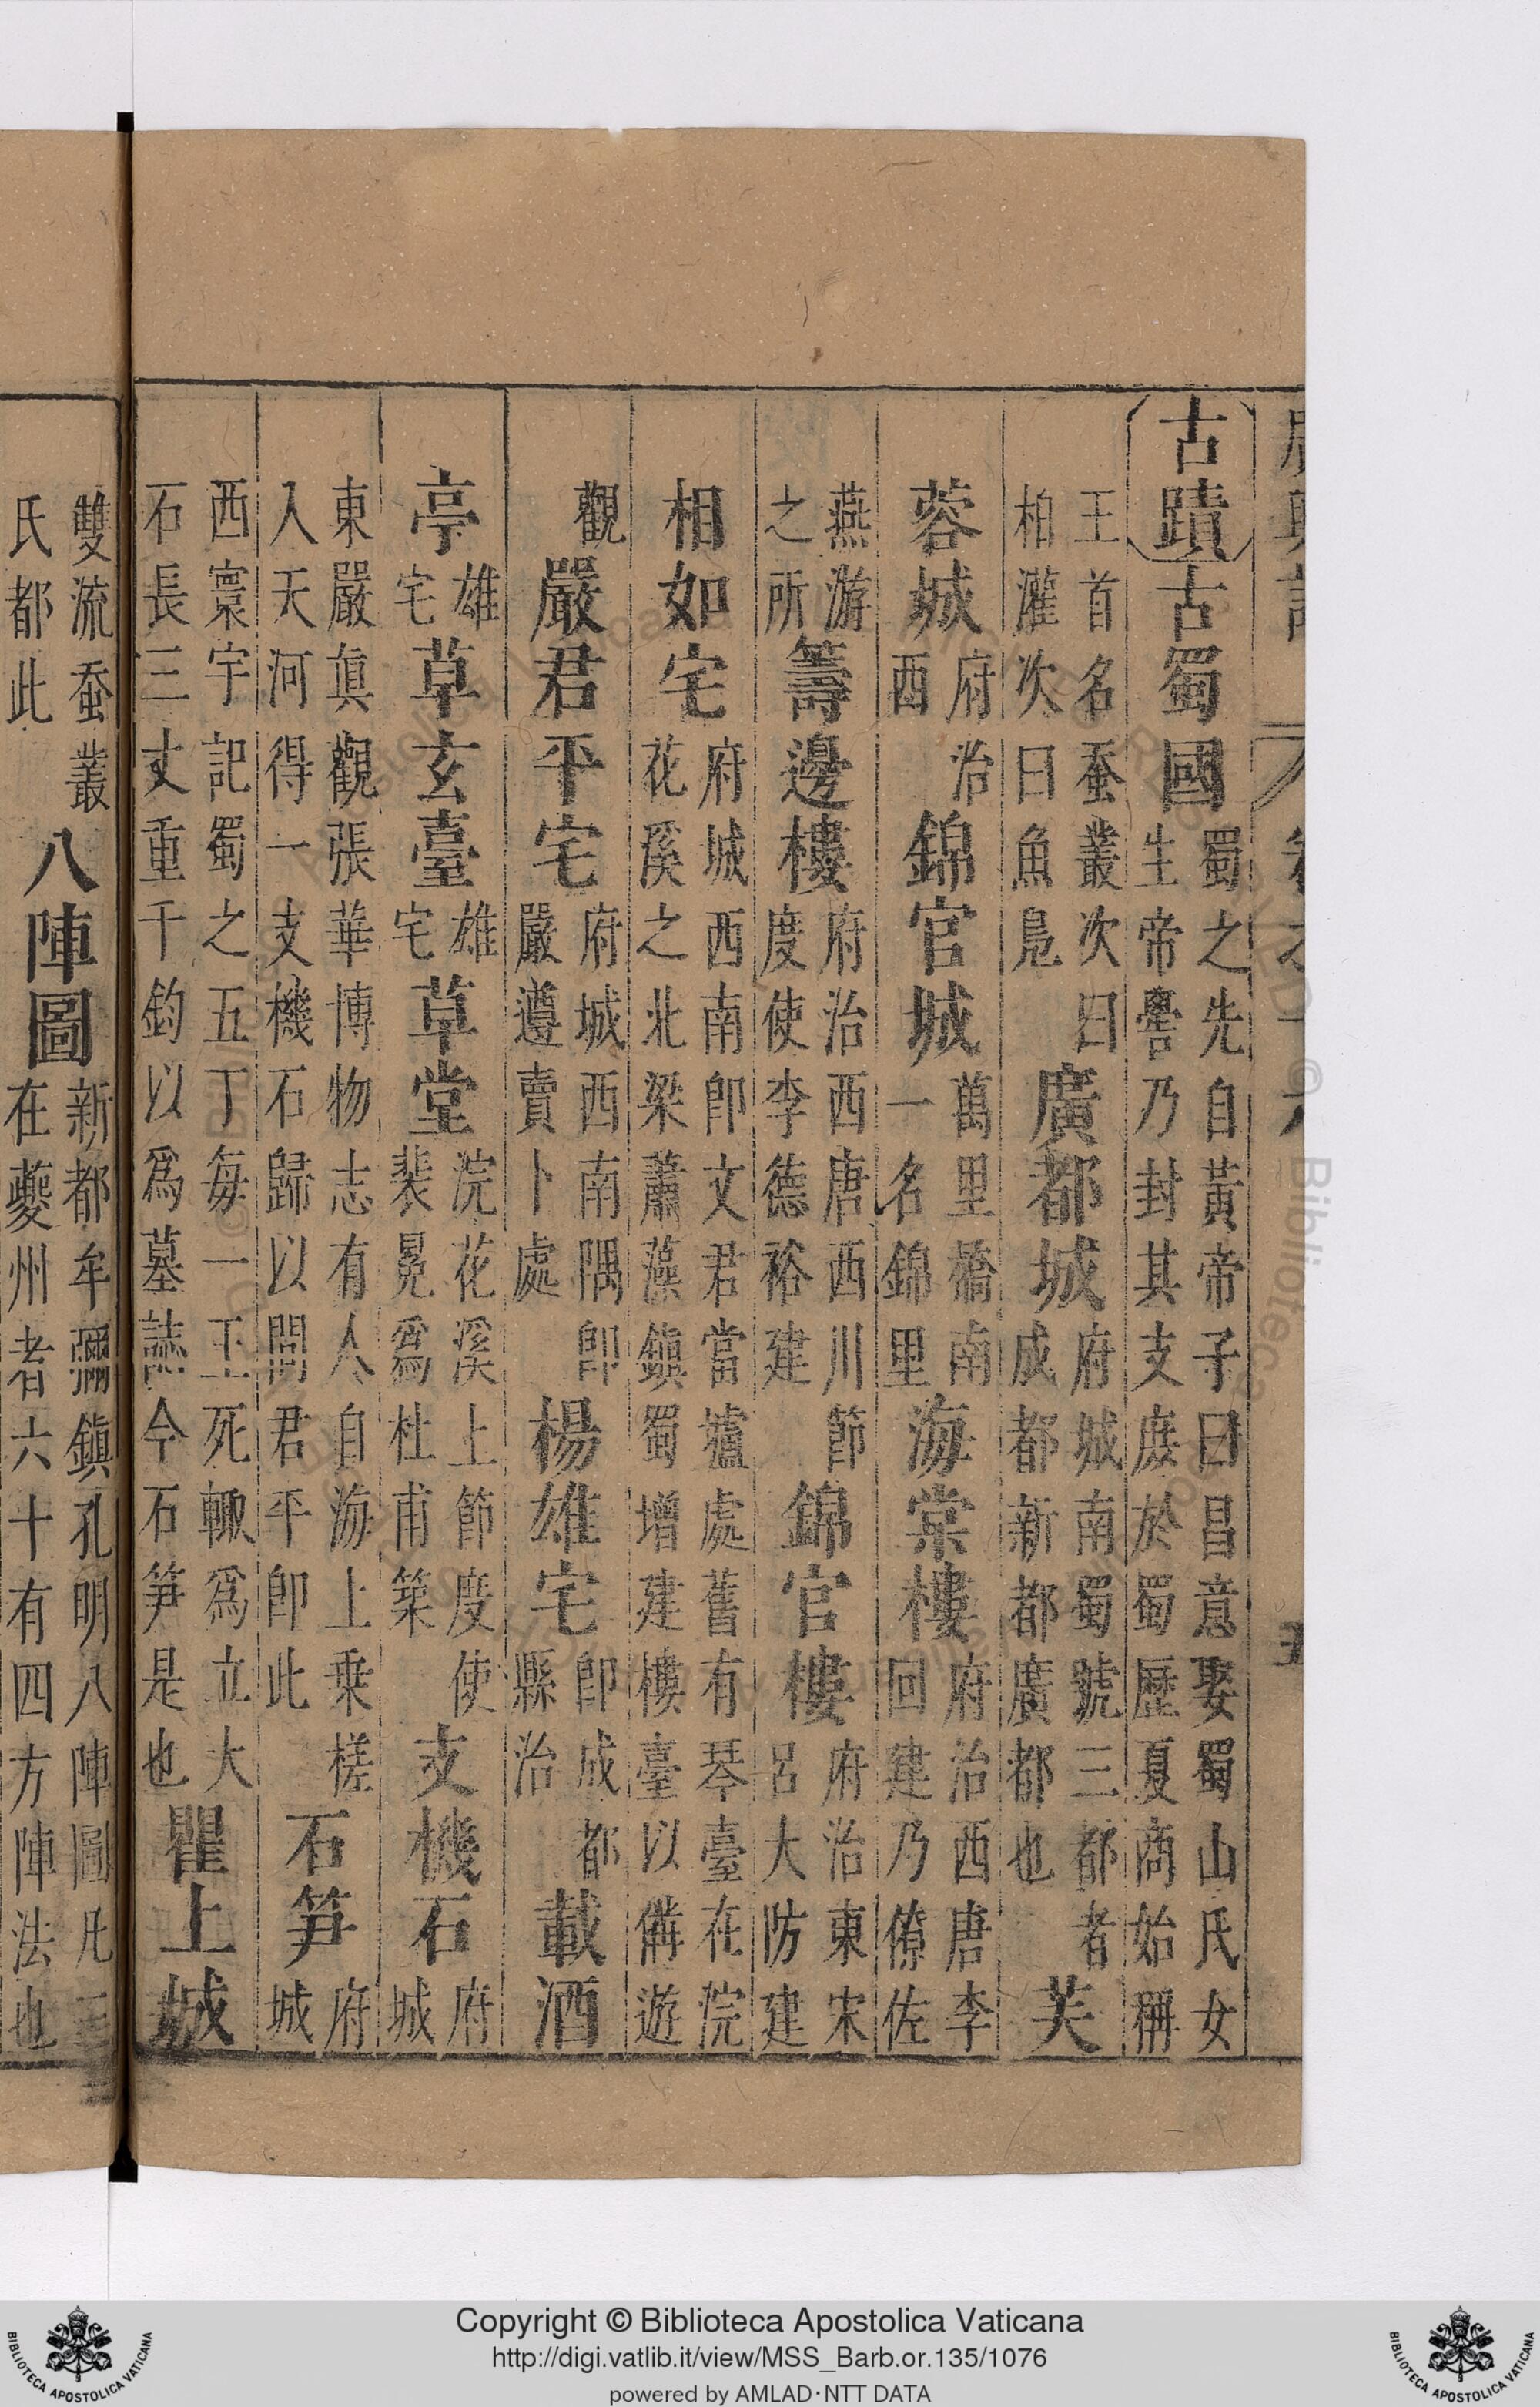 古蹟古蜀國蜀之先自黃帝子曰昌意娶蜀山氏女生帝嚳乃封其支庶於蜀歷夏商始稱
王首名蚕叢次曰柏灌次曰魚鳧廣都城府城南蜀號三都者成都新都廣都也芙
蓉城府治西錦官城萬里橋南一名錦里海棠樓府治西唐李回建乃僚佐
燕游之所籌邊樓府治西唐西川節度使李德裕建錦官樓府治東宋呂大防建
相如宅府城西南卽文君當壚處舊有琴臺在浣花溪之北梁蕭藻鎮蜀增建樓臺以備遊
觀嚴君平宅府城西南隅卽嚴遵賣卜處楊雄宅卽成都縣治載酒
亭雄宅草玄臺雄宅草堂浣花溪上節度使裴冕爲杜甫築支機石府城
東嚴眞觀張華博物志有人自海上乗槎入天河得一支機石歸以問君平卽此石笋府城
西寰宇記蜀之五丁每一王死輙爲立大石長三丈重千鈞以爲墓誌今石笋是也瞿上城
雙流蚕叢氏都此八陣圖新都牟彌鎮孔明八陣圖凡三在夔州者六十有四方陣法也
Copyright © Biblioteca Apostolica Vaticana
http://digi.vatlib.it/view/MSS_Barb.or.135/1076
powered by AMLAD·NTT DATA
BIBLIOTECA APOSTOLICA VATICANA
BIBLIOTECA APOSTOLICA VATICANA